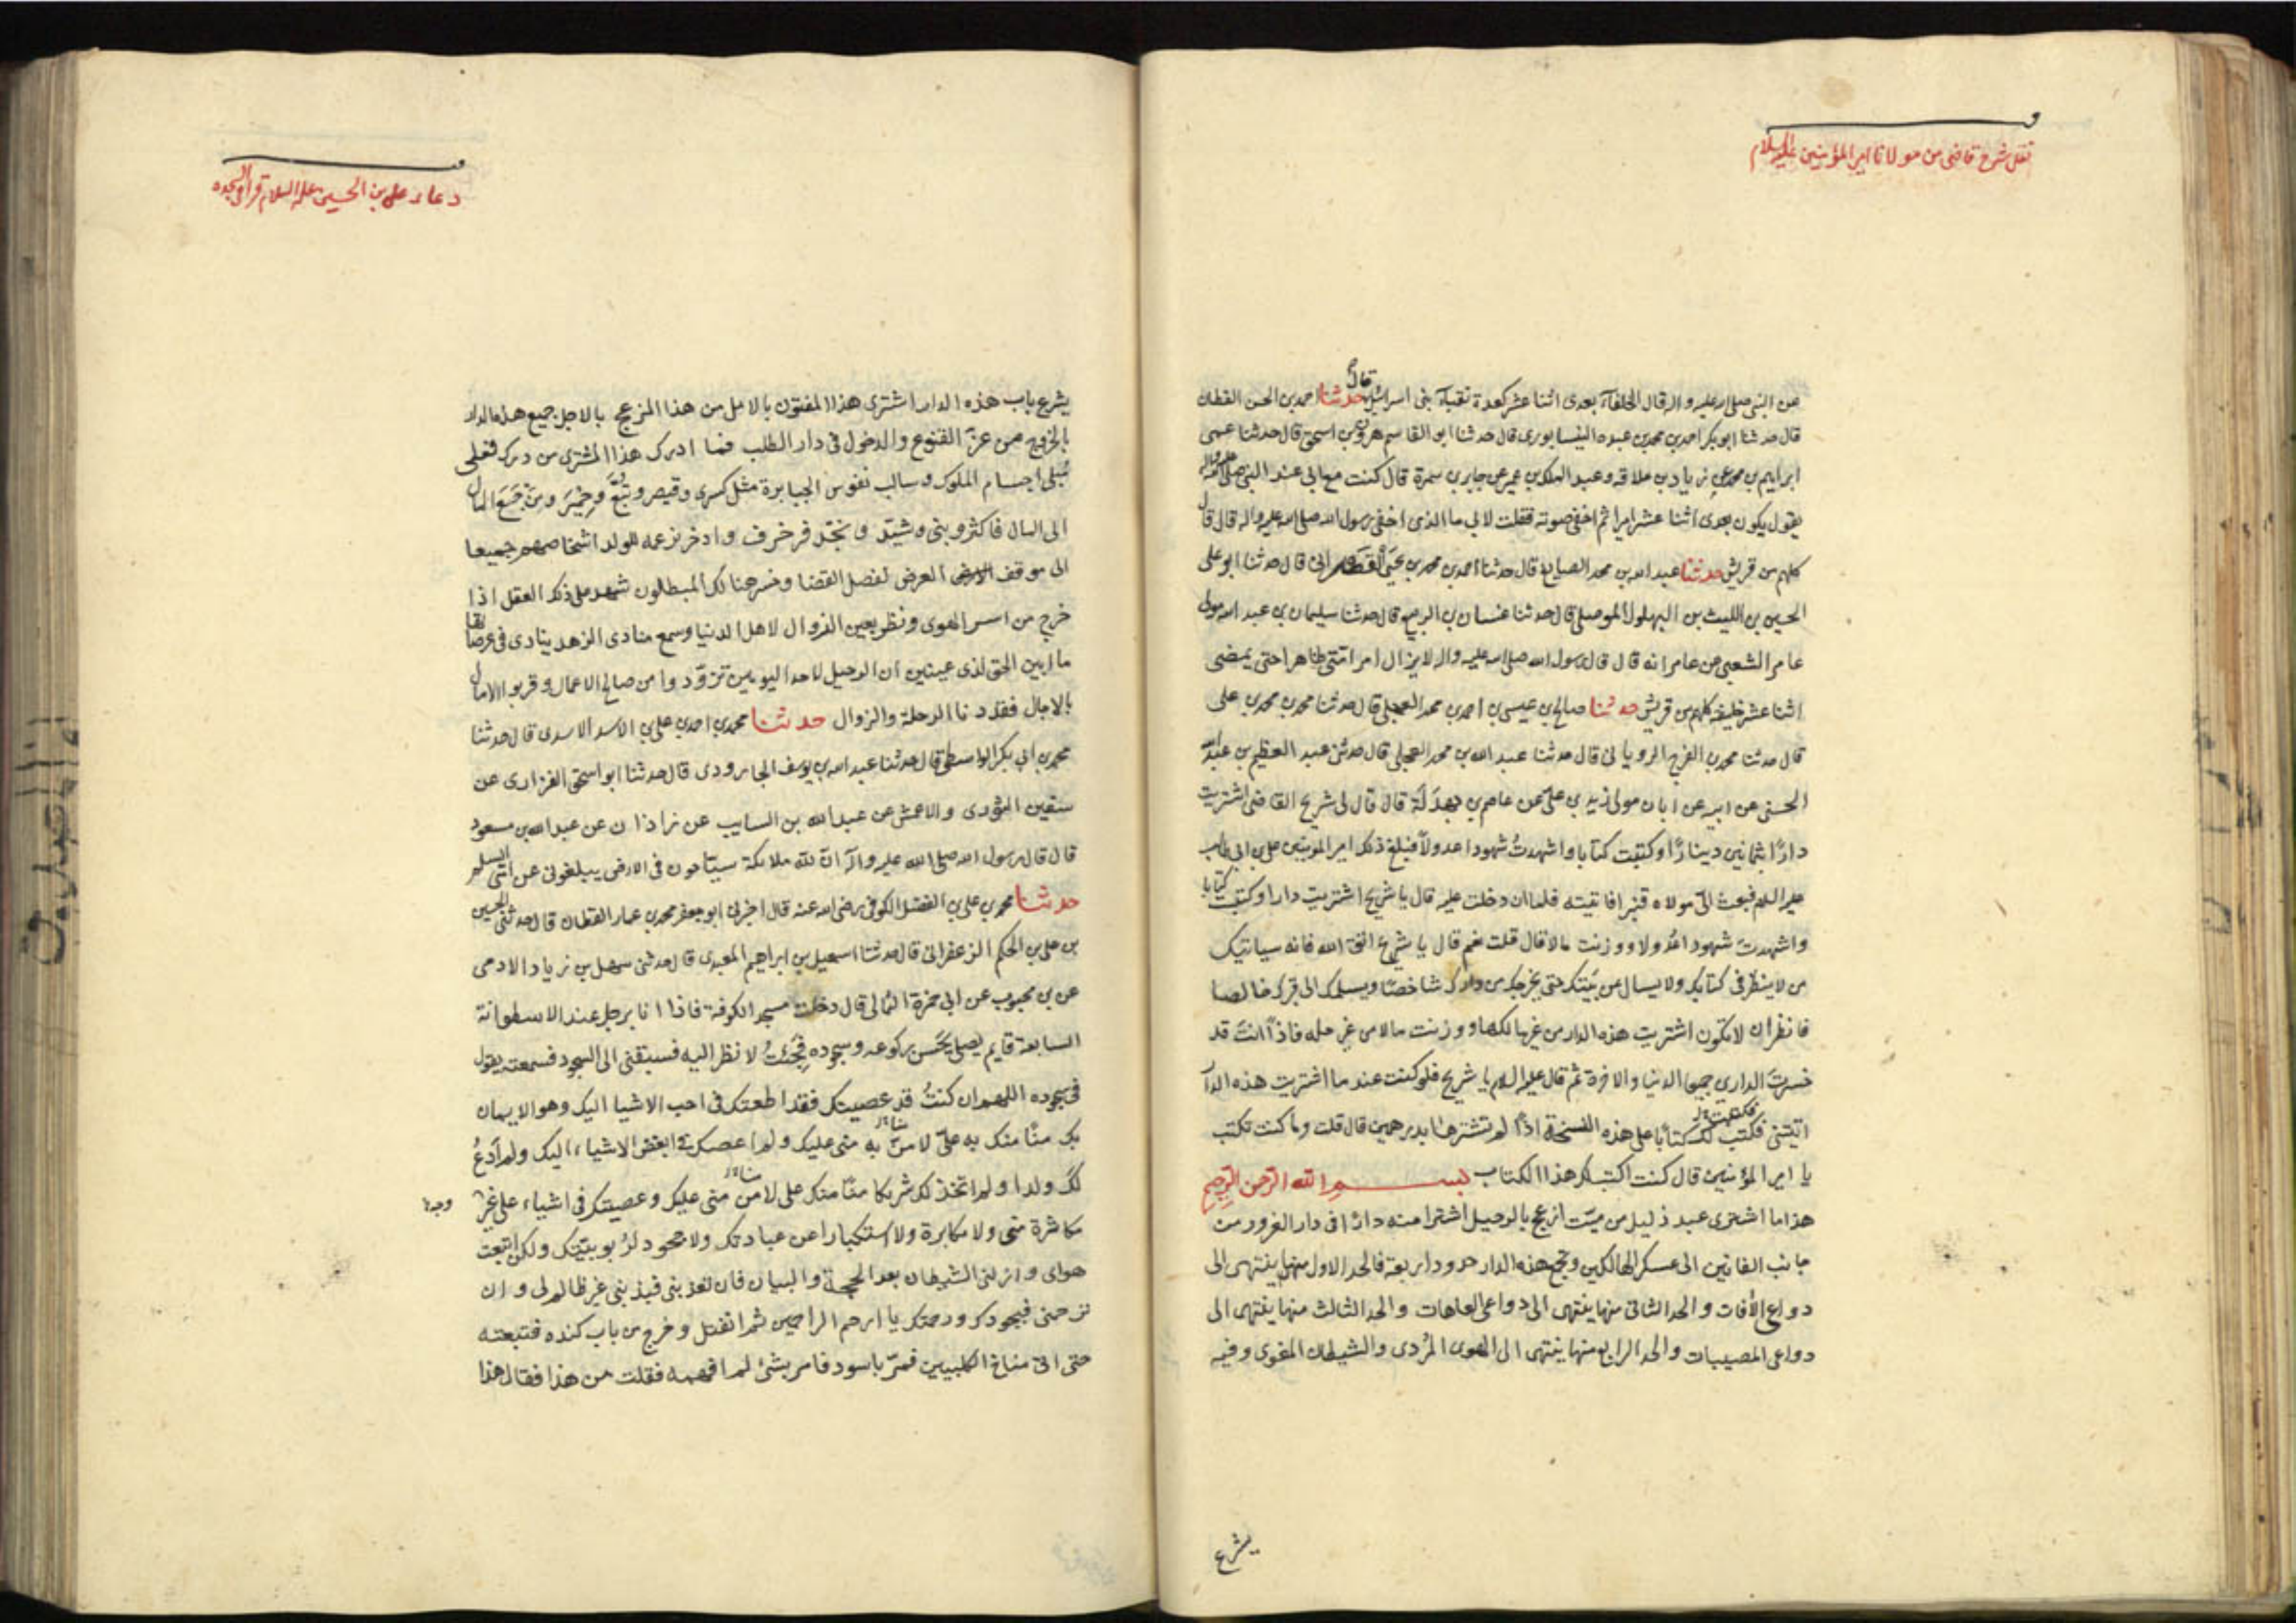 نقل شريح قاضى من مولانا امير المؤمنين عليه السلام
عن النبى صلى الله عليه واله قال الخلفآء بعدى اثنا عشر كعدة نقبآء بنى اسرائيل حدثنا احمد بن الحسن القطان
قال
قال حدثنا ابو بكر احمد بن محمد بن عبده النيسابورى قال حدثنا ابو القاسم هرون بن اسحق قال حدثنا عمى
ابراهيم بن محمد عن زياد بن علاقه وعبد الملك بن عمير عن جابر بن سمرة قال كنت مع ابى عند النبى صلى الله عليه واله
يقول يكون بعدى اثنا عشر اميرا ثم اخفى صوته فقلت لابى ما الذى اخفى رسول الله صلى الله عليه واله قال قال
كلهم من قريش حدثنا عبد الله بن محمد الصايغ قال حدثنا احمد بن محمد بن يحيى القصرانى قال حدثنا ابو على
الحسين بن الليث بن البهلول الموصلى قال حدثنا غسان بن الربيع قال حدثنا سليمان بن عبد الله مولى
عامر الشعبى عن عامر انه قال قال رسول الله صلى الله عليه واله لا يزال امر امتى ظاهرا حتى يمضى
اثنا عشر خليفه كلهم من قريش حدثنا صالح بن عيسى بن احمد بن محمد العجلى قال حدثنا محمد بن محمد بن على
قال حدثنا محمد بن الفرج الرويانى قال حدثنا عبد الله بن محمد العجلى قال حدثنى عبد العظيم بن عبد الله
الحسنى عن ابيه عن ابان مولى زيد بن على عن عاصم بن بهدلة قال قال لى شريح القاضى اشتريت
دارا بثمانين دينارا وكتبت كتابا واشهدت شهودا عدولا فبلغ ذلك امير المؤمنين على بن ابى طالب
عليه السلم فبعث الىّ مولاه قنبرا فاتيته فلما ان دخلت عليه قال يا شريح اشتريت دارا وكتبت كتابا
واشهدت شهودا عدولا ووزنت مالا قال قلت نعم قال يا شريح اتق الله فانه سياتيك
من لا ينظر فى كتابك ولا يسال عن بينتك حتى يخرجك من دارك شاخصا ويسلمك الى قبرك خالصا
فانظر ان لا تكون اشتريت هذه الدار من غير مالكها ووزنت مالا من غير حله فاذا انت قد
خسرت الدارين جميعا الدنيا والاخرة ثم قال عليه السلم يا شريح فلو كنت عند ما اشتريت هذه الدار
اتيتنى فكتبت لك كتابا على هذه النسخة اذا لم تشترها بدرهمين قال قلت وما كنت تكتب
يا امير المؤمنين قال كنت اكتب لك هذا الكتاب بسم الله الرحمن الرحيم
هذا ما اشترى عبد ذليل من ميّت ازعج بالرحيل اشترا منه دارا فى دار الغرور من
جانب الفانين الى عسكر الهالكين وتجمع هذه الدار حدودا اربعة فالحد الاول منها ينتهى الى
دواعى الآفات والحد الثانى منها ينتهى الى دواعى العاهات والحد الثالث منها ينتهى الى
دواعى المصيبات والحد الرابع منها ينتهى الى الهوى المُردى والشيطان المغوى وفيه
يشرع
دعاء على بن الحسين عليه السلام قرا فى السجده
يشرع باب هذه الدار اشترى هذا المفتون بالامل من هذا المزعج بالاجل جميع هذه الدار
بالخروج من عزّ القنوع والدخول فى دار الطلب فما ادرك هذا المشترى من درك فعلى
مُبلى اجسام الملوك وسالب نفوس الجبابرة مثل كسرى وقيصر وتبّع وحِميَر ومن جَمَعَ المال
الى المال فاكثر وبنى وشيّد ونجّد فزخرف وادخر بزعمه للولد اشخاصهم جميعا
الى موقف العرض لفصل القضا وخسر هنالك المبطلون شهد على ذلك العقل اذا
خرج من اسر الهوى ونظر بعين الزوال لاهل الدنيا وسمع منادى الزهد ينادى فى عرصاتها
ما ابين الحق لذى عينين ان الرحيل احد اليومين تزوّدوا من صالح الاعمال وقربوا الامال
بالاجال فقد دنا الرحلة والزوال حدثنا محمد بن احمد بن على بن الاسد الاسدى قال حدثنا
محمد بن ابى بكر الواسطى قال حدثنا عبد الله بن يوسف الجابرودى قال حدثنا ابو اسحق الفزارى عن
سفين الثورى والاعمش عن عبد الله بن السايب عن زاذان عن عبد الله بن مسعود
قال قال رسول الله صلى الله عليه وآله انّ لله ملائكة سيّاحون فى الارض يبلغونى عن امتى السلم
حدثنا محمد بن على بن الفضل الكوفى رضى الله عنه قال اخبرنى ابو جعفر محمد بن عمار القطان قال حدثنى الحسين
بن على بن الحكم الزعفرانى قال حدثنا اسمعيل بن ابراهيم العبدى قال حدثنى سهل بن زياد الادمى
عن بن محبوب عن ابى حمزة الثمالى قال دخلت مسجد الكوفة فاذا انا برجل عند الاسطوانة
السابعة قايم يصلى يحسن ركوعه وسجوده فجئت لانظر اليه فسبقنى الى السجود فسمعته يقول
فى سجوده اللهم ان كنتُ قد عصيتك فقد اطعتك فى احب الاشيا اليك وهو الايمان
بك منّا منك به علىّ لا منّ به منى عليك ولم اعصك فى ابغض الاشياء اليك ولم أدعُ
لك ولدا ولم اتخذ لك شريكا منّا منك على لا من منى عليك وعصيتك فى اشياء على غير
وجه
مكاثرة منى ولا مكابرة ولا استكبارا عن عبادتك ولا جحود لربوبيّتك ولكن اتبعت
هواى وازلنى الشيطان بعد الحجة والبيان فان تعذبنى فبذنبى غير ظالم لى وان
ترحمنى فبجودك ورحمتك يا ارحم الراحمين ثم انفتل وخرج من باب كنده فتبعته
حتى اتى مناخ الكلبيين فمرّ باسود فامر بشئ لم افهمه فقلت من هذا فقال هذا